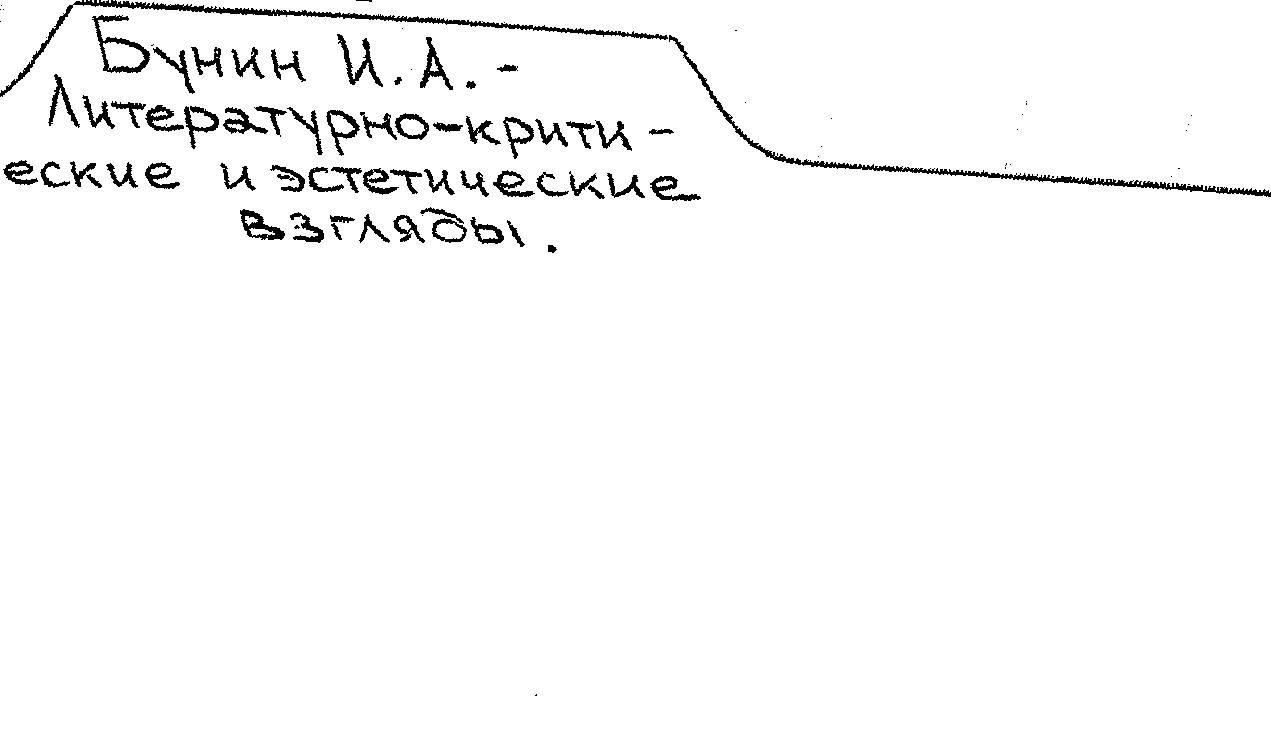 Бунин И. А. -
Литературно-крити -
еские и эстетические
взгляды.